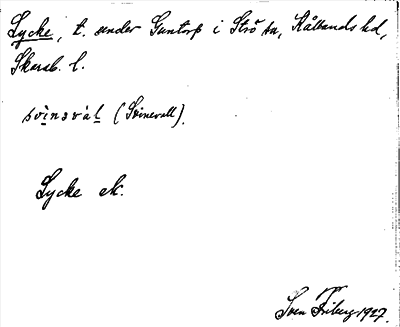 Lycke, t. under Guntorp i Strö sn, Kållands hd,
Skarab. l.
svinəvàl (Svinevall).
Lycke ek.
Sven Friberg 1927.